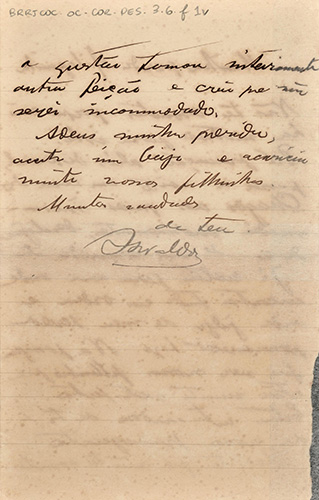 BRRJCOC-OC-COR-DES.3.6.f 1v
a questão tomou inteiramente
outra feição e creio que não
serei incommodado.
Adeus minha querida,
aceite um beijo e acaricia
muito nossos filhinhos.
Muitas saudades
do teu
Oswaldo